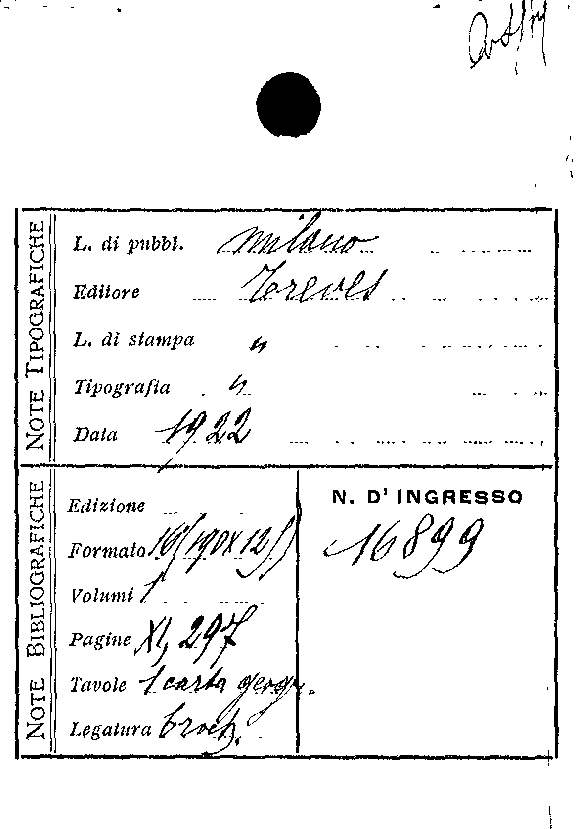 NOTE TIPOGRAFICHE
L. di pubbl. Milano
Editore Treves
L. di stampa "
Tipografia "
Data 1922
NOTE BIBLIOGRAFICHE
Edizione
Formato 16º(190X12)
Volumi 1
Pagine XI, 297
Tavole 1 carta geogr.
Legatura broch.
N. D' INGRESSO
16899